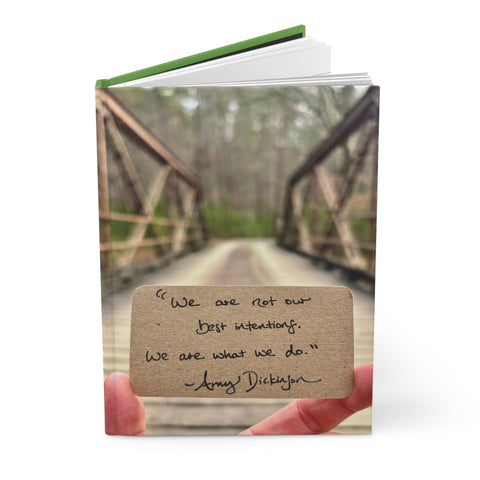 "We are not our
best intentions.
We are what we do."
- Amy Dickinson